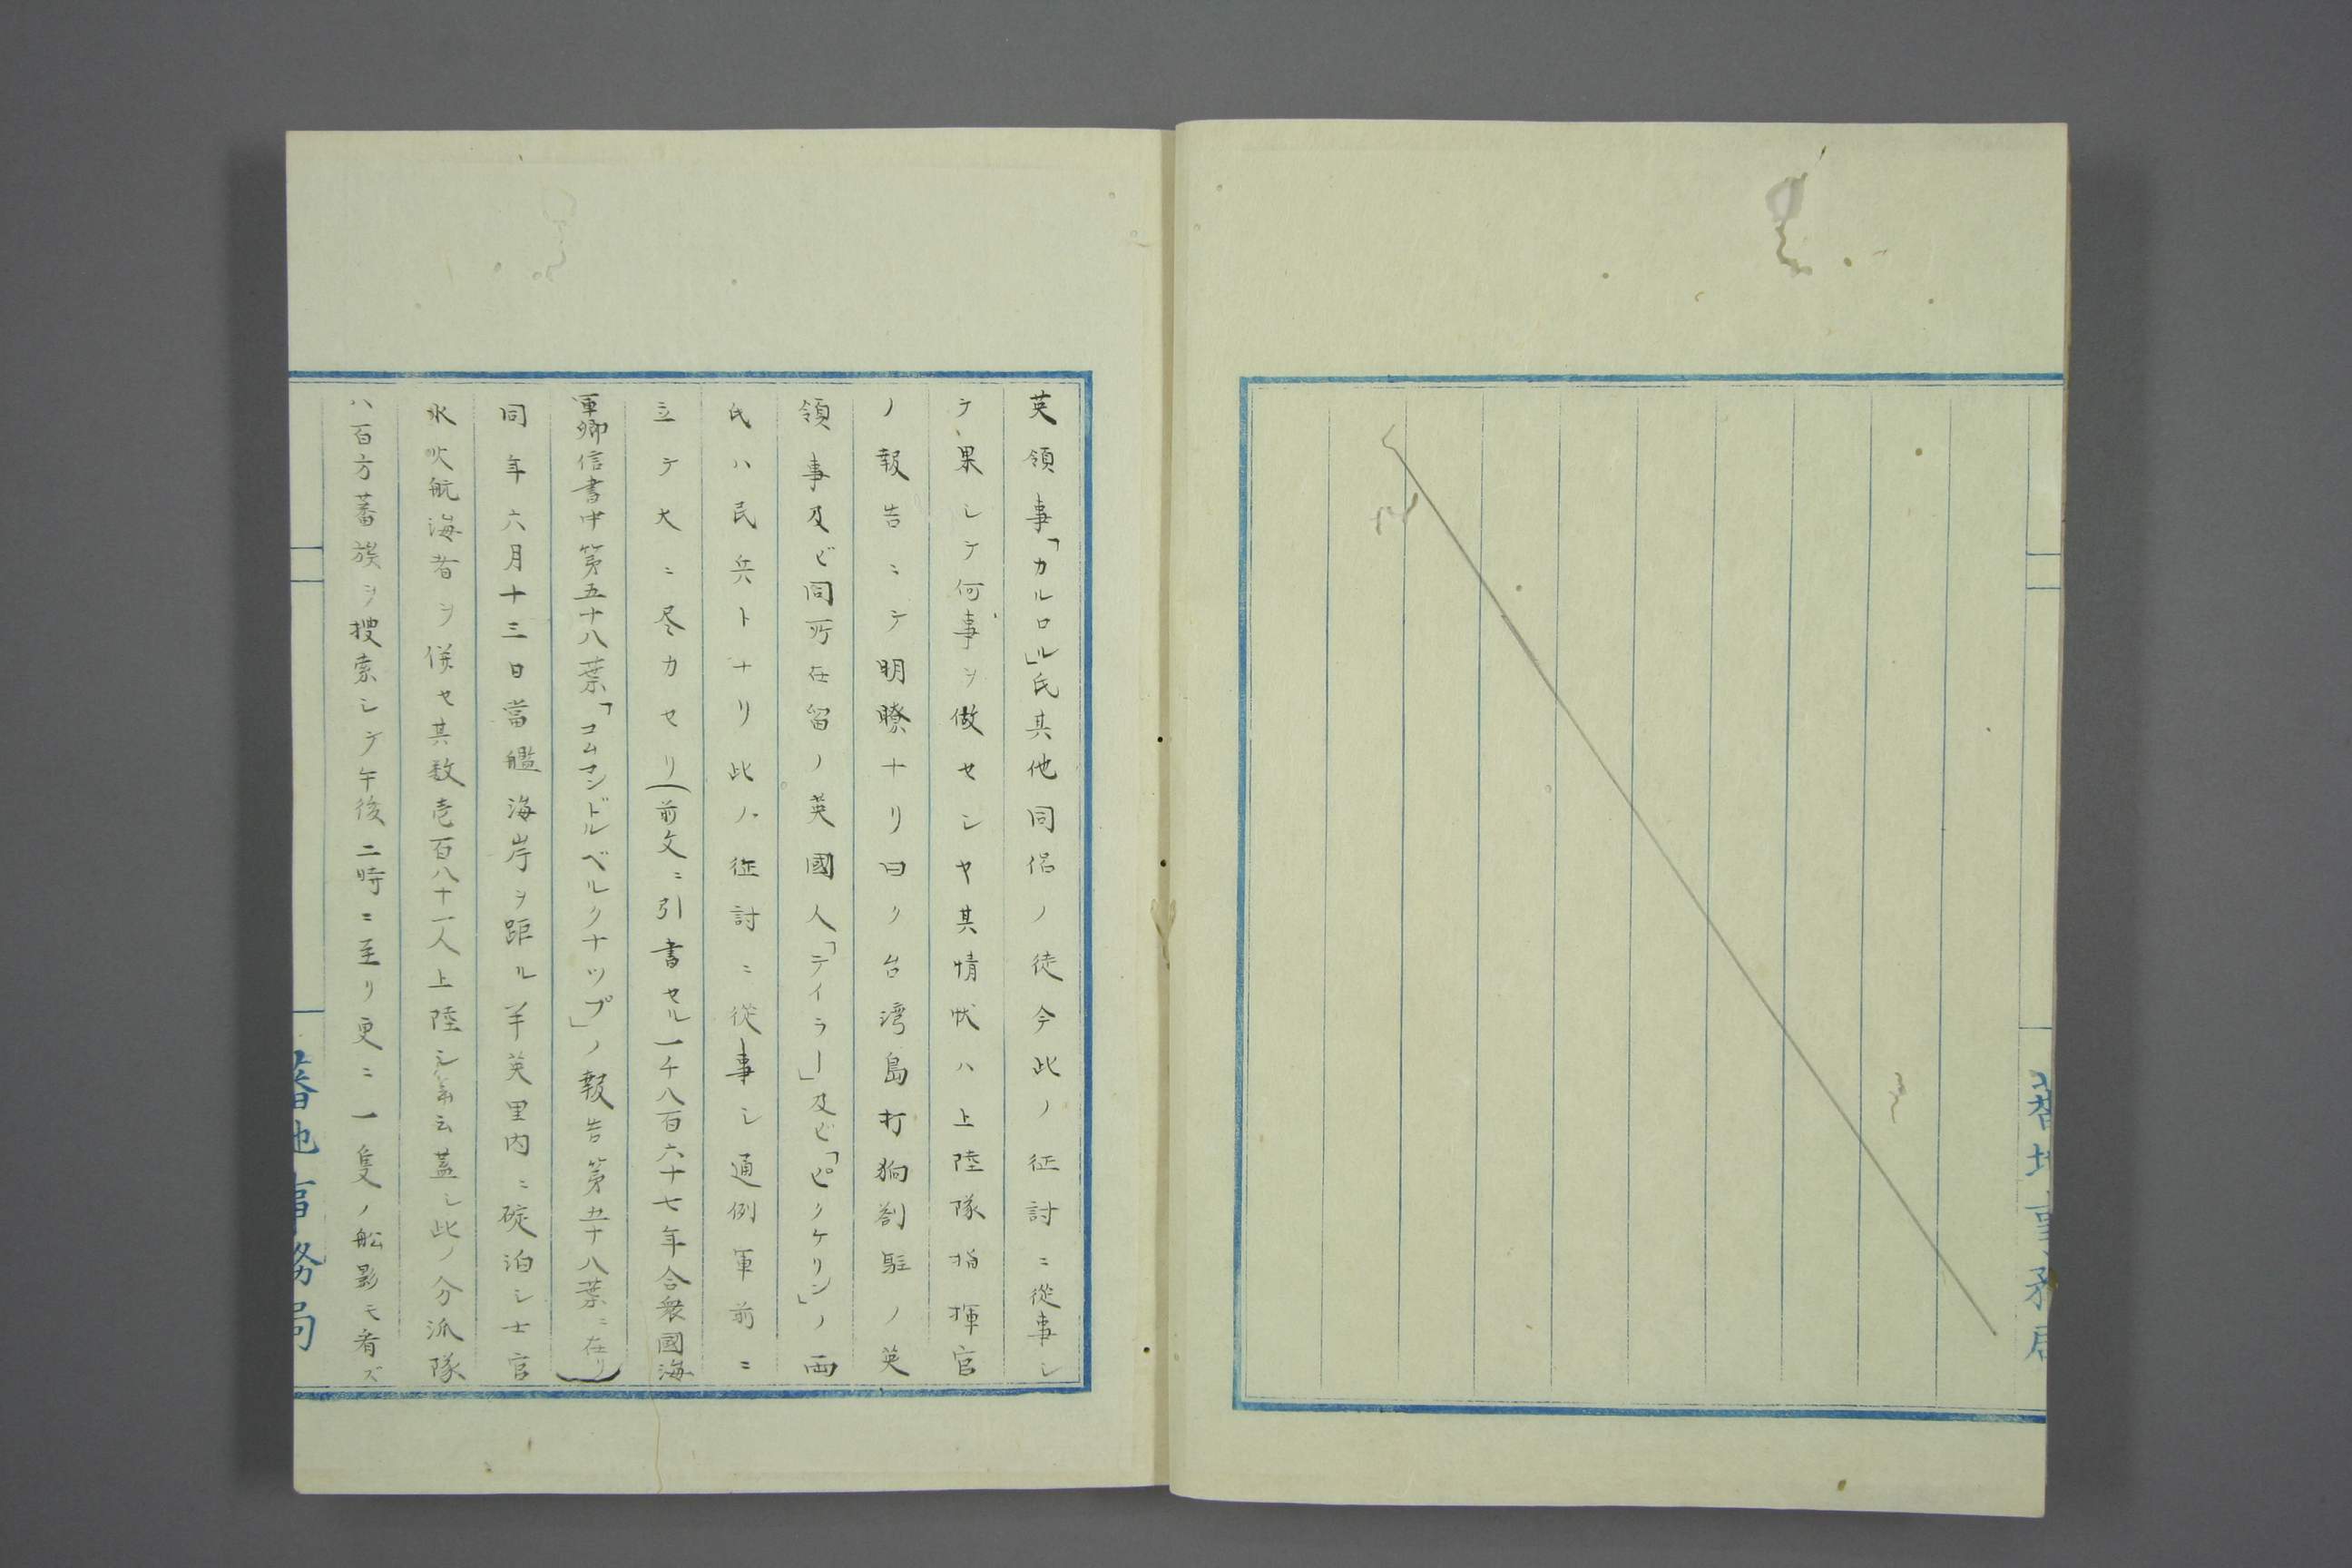 蕃地事務局
英領事「カルロル」氏其他同侶ノ徒今此ノ征討ニ從事シ
テ果シテ何事ヲ做セシヤ其情狀ハ上陸隊指揮官
ノ報告ニテ明瞭ナリ曰ク台湾島打狗劄駐ノ英
領事及ビ同所在留ノ英國人「テイラー」及ビ「ピクケリン」ノ両
氏ハ民兵トナリ此ノ征討ニ從事シ通例軍前ニ
立テ大ニ尽力セリ(前文ニ引書セル一千八百六十七年合衆國海
軍卿信書中第五十八葉「コムマンドルベルクナップ」ノ報告第五十八葉ニ在リ)
同年六月十三日當艦海岸ヲ距ル半英里内ニ碇泊シ士官
水火航海者ヲ併セ其数壱百八十一人上陸シ云蓋シ此ノ分派隊
ハ百方蕃族ヲ搜索シテ午後二時ニ至リ更ニ一隻ノ船影モ看ズ
蕃地事務局